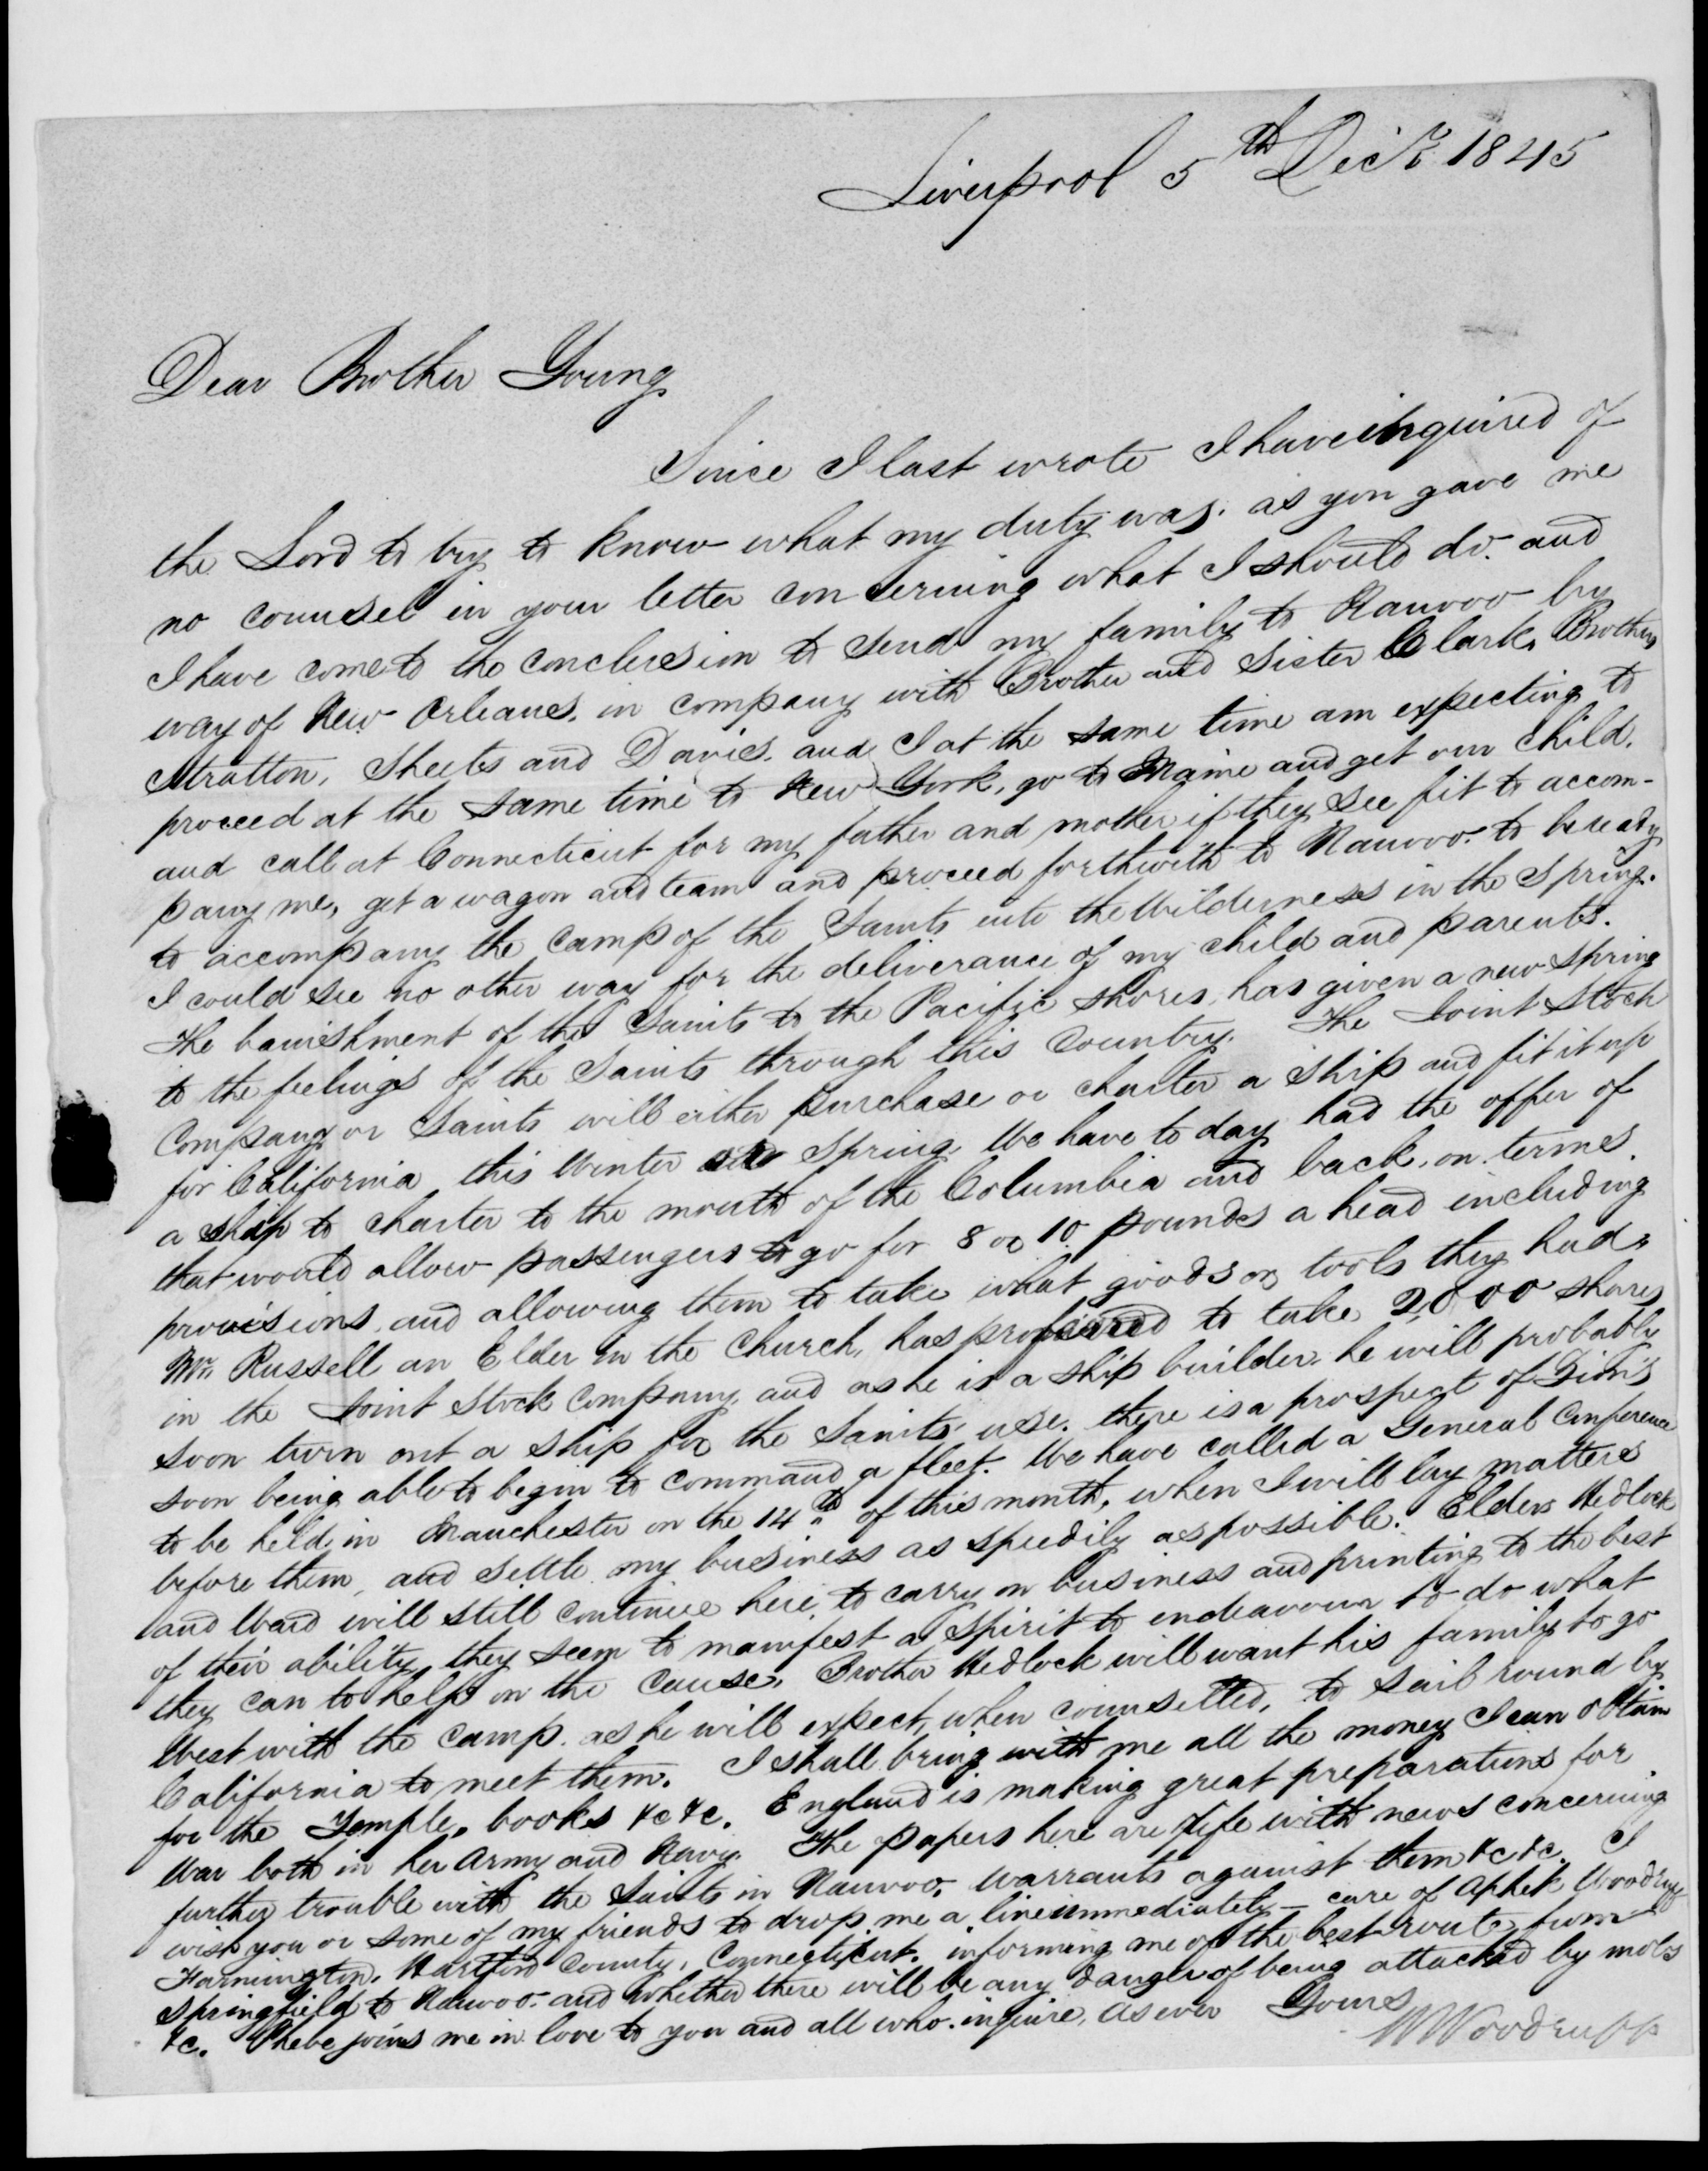 Liverpool 5th Decr. 1845
Dear Brother Young
Since I last wrote I have inquired of
the Lord to try to know what my duty was. as you gave me
no counsel in your letter concerning what I should do. and
I have come to the conclusion to send my family to Nauvoo by
way of New Orleans. in company with Brother and Sister Clark, Brothers
Stratton, Sheets and Davies. and I at the same time am expecting to
proceed at the same time to New York, go to Maine and get our child.
and call at Connecticut for my father and mother if they see fit to accom-
pany me, get a wagon and team and proceed forthwith to Nauvoo. to be ready
to accompany the camp of the Saints into the Wilderness in the Spring.
I could see no other way for the deliverance of my child and parents.
The banishment of the Saints to the Pacific shores, has given a new spring
to the feelings of the Saints through this Country. The Joint Stock
Company or Saints will either purchase or charter a ship and fit it up
for California this Winter or Spring. We have to day had the offer of
a ship to charter to the mouth of the Columbia and back, on terms
that would allow passengers to go for 8 or 10 pounds a head including
provisions, and allowing them to take what goods or tools they had.
Mr. Russell an Elder in the Church, has proffered to take 2,000 shares
in the Joint Stock Company, and as he is a ship builder, he will probably
soon turn out a ship for the Saints' use. there is a prospect of Zion's
soon being able to begin to command a fleet. We have called a General Conference
to be held in Manchester on the 14th of this month, when I will lay matters
before them, and settle my business as speedily as possible. Elders Hedlock
and Ward will still continue here, to carry on business and printing to the best
of their ability, they seem to manifest a spirit to endeavour to do what
they can to help on the cause. Brother Hedlock will want his family to go
West with the camp. as he will expect, when counselled, to sail round by
California to meet them. I shall bring with me all the money I can obtain
for the Temple, books &c &c. England is making great preparations for
War both in her Army and Navy. The papers here are rife with news concerning
further trouble with the Saints in Nauvoo, warrants against them &c &c. I
wish you or some of my friends to drop me a line immediately – care of Aphek Woodruff
Farmington, Hartford County, Connecticut. informing me of the best route from
Springfield to Nauvoo. and whether there will be any danger of being attacked by mobs
&c. Phebe joins me in love to you and all who inquire, as ever Yours
W Woodruff